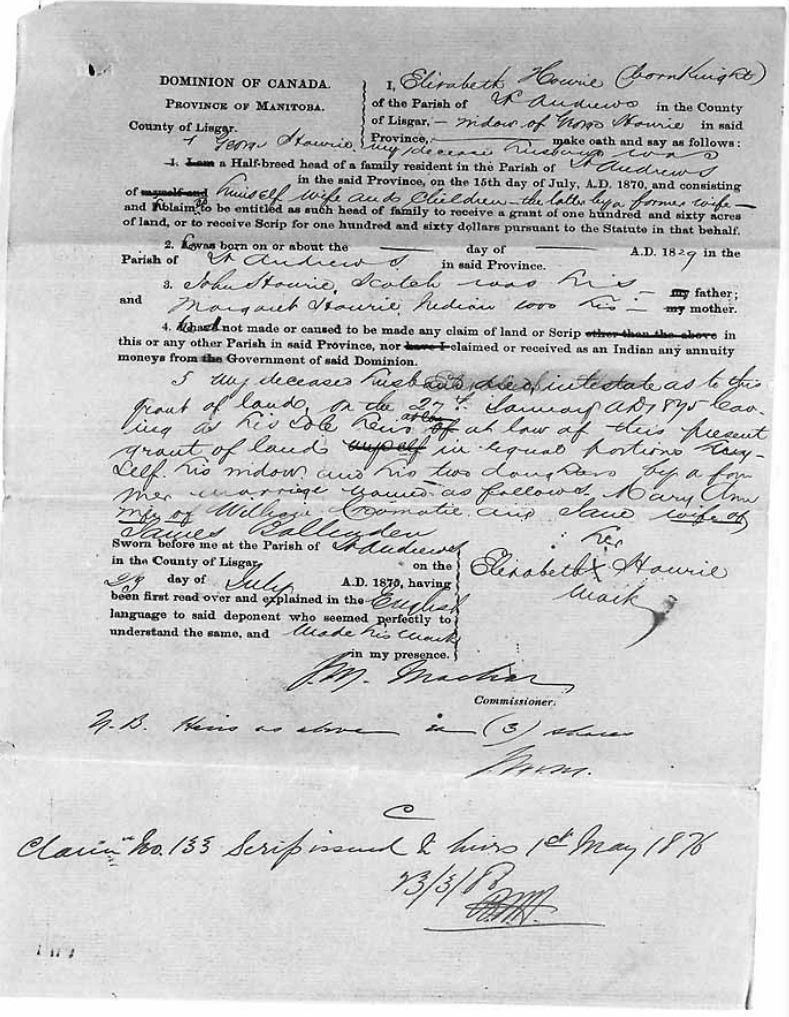 DOMINION OF CANADA.
PROVINCE OF MANITOBA.
County of Lisgar.
I, Elizabeth Howrie (born Knight)
of the Parish of St Andrews in the County
of Lisgar, – widow of Howrie in said
Province, make oath and say as follows:
Howrie, my decease husband was
1. I am a Half-breed head of a family resident in the Parish of St Andrews
in the said Province, on the 15th day of July, A.D. 1870, and consisting
of myself and himself wife and Children – the latter by a former wife –
and I claim to be entitled as such head of family to receive a grant of one hundred and sixty acres
of land, or to receive Scrip for one hundred and sixty dollars pursuant to the Statute in that behalf.
2. was born on or about the day of A.D. 1829 in the
Parish of St Andrews in said Province.
3. John Howrie, Scotch was his my father;
and Margaret Howrie, Indian was his my mother.
4. not made or caused to be made any claim of land or Scrip other than the above in
this or any other Parish in said Province, nor have I claimed or received as an Indian any annuity
moneys from the Government of said Dominion.
5 My deceased husband died intestate as to this
grant of land, on the 27th January AD 1875 leav-
ing as his sole heirs of at law of this present
grant of lands myself in equal portions my-
self his widow and his two daughters by a for
mer marriage named as follows Mary Ann
wife of William Cromatie and Jane wife of
James Ballenden
Sworn before me at the Parish of St Andrews
in the County of Lisgar, on the
23 day of July A.D. 1875, having
been first read over and explained in the English
language to said deponent who seemed perfectly to
understand the same, and made his mark
in my presence.
her
Elizabeth X Howrie
mark
J.M. Machar
Commissioner.
N.B. Heirs as above in (3) shares
J.M.M.
C
Claim No. 133 Scrip issued to heirs 1st May 1876
23/3/88